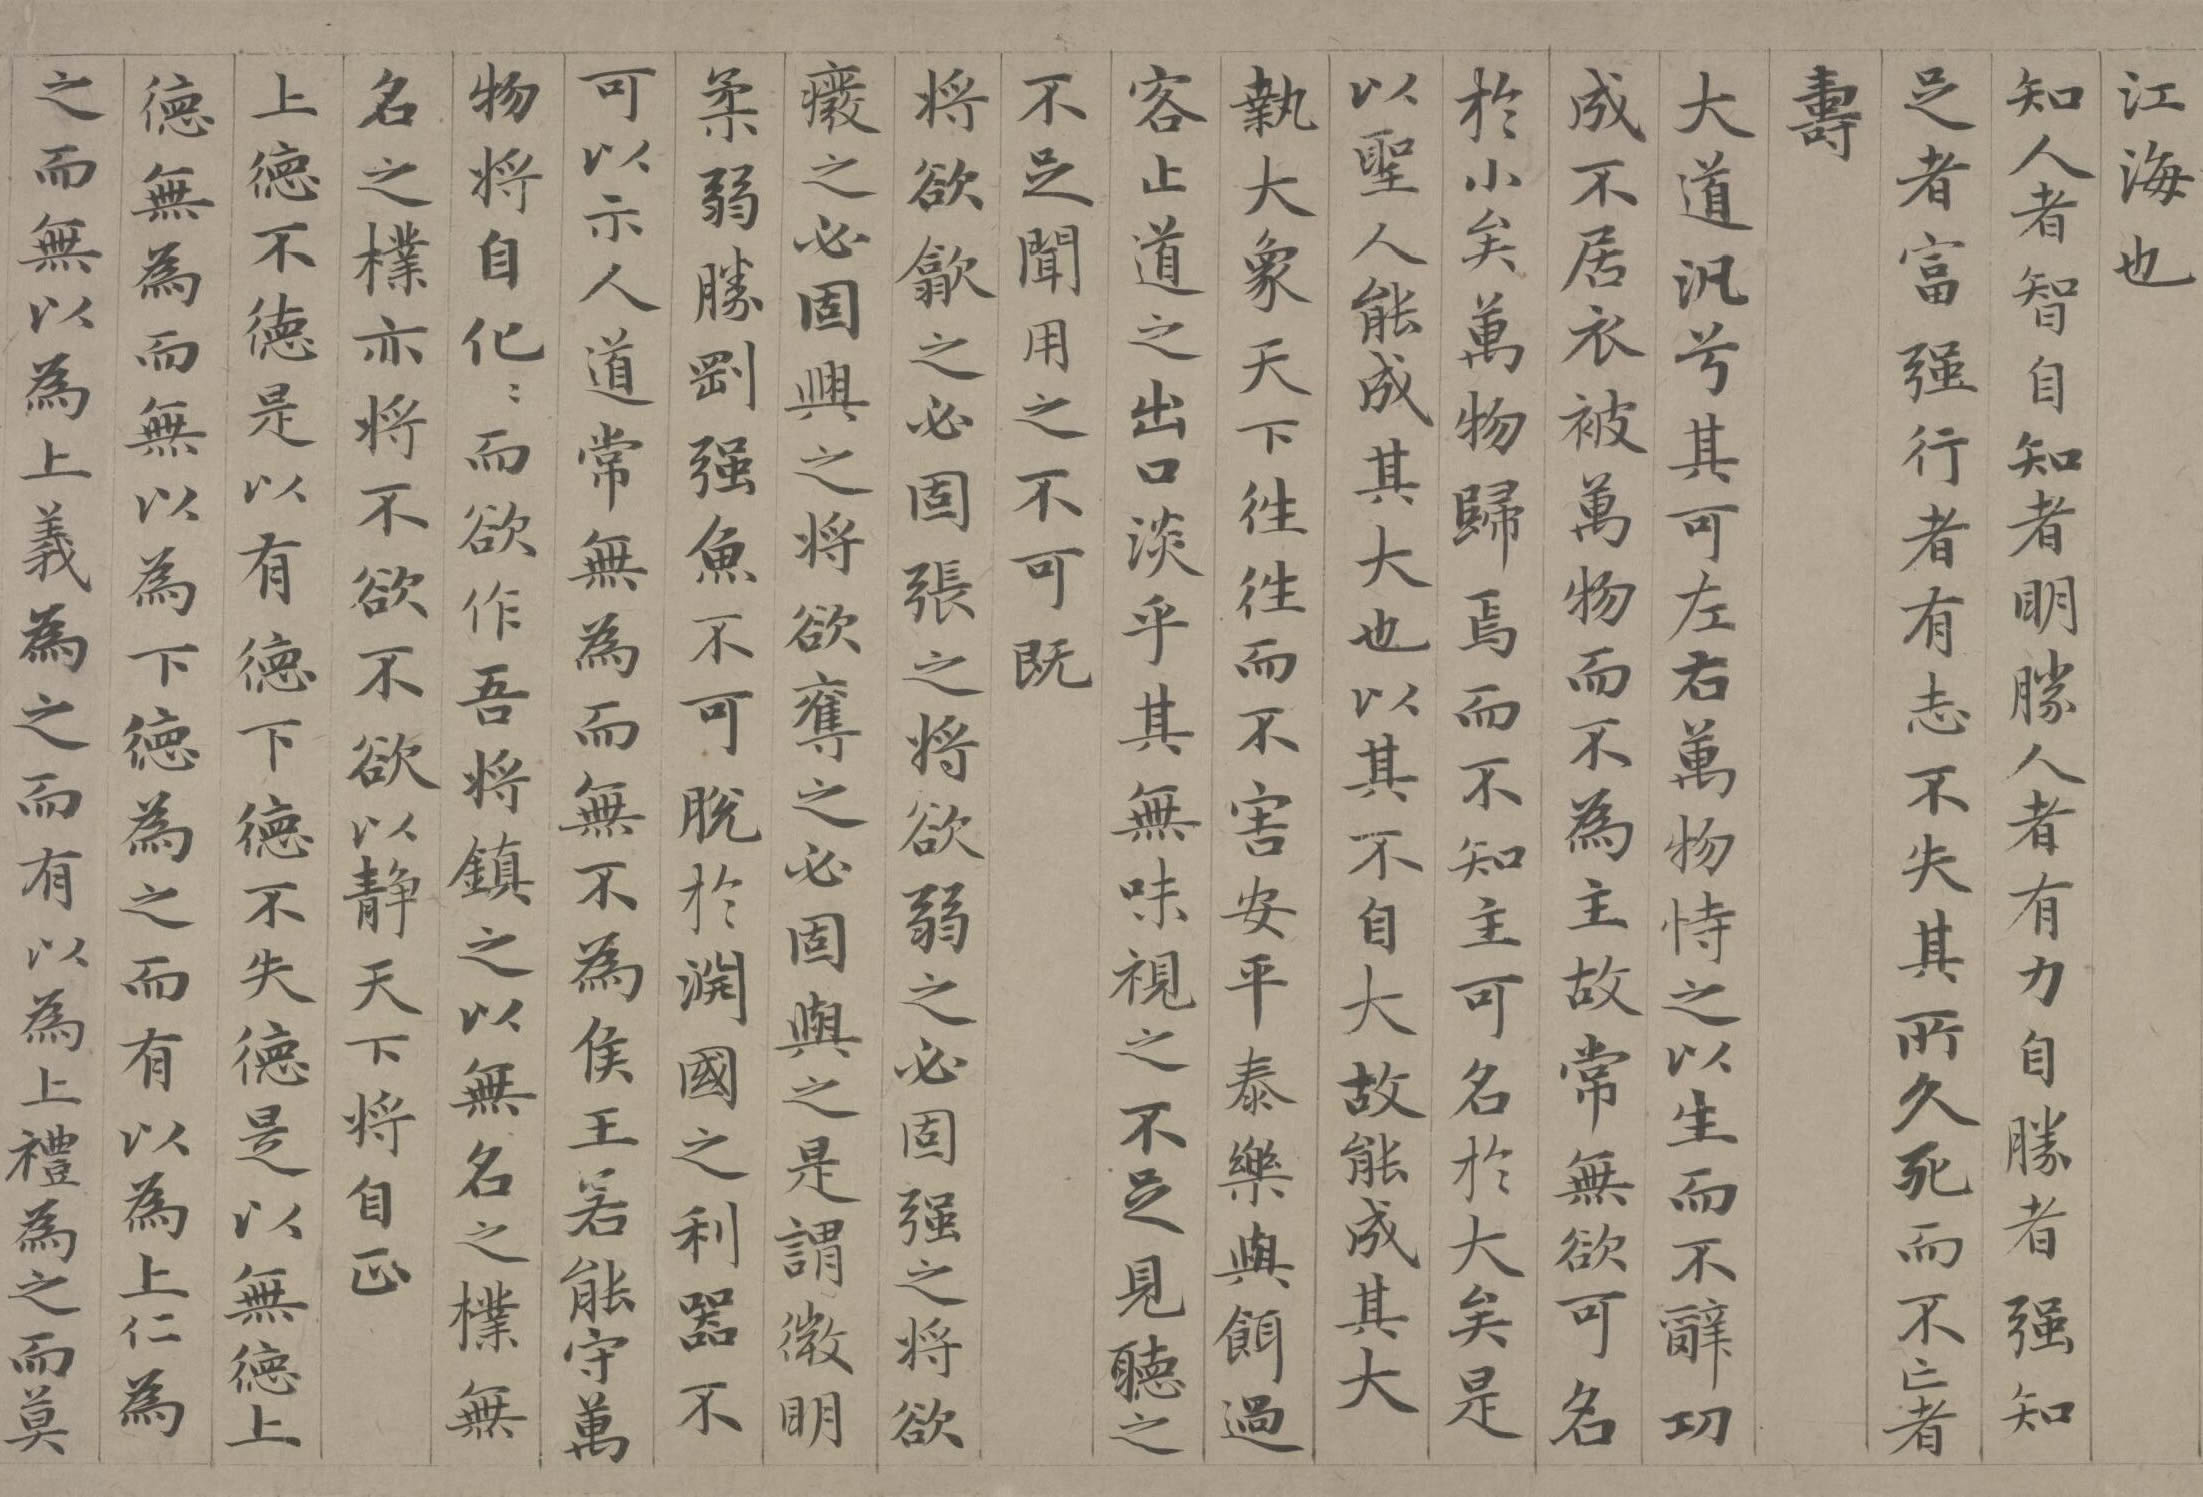 江海也
知人者智自知者明勝人者有力自勝者强知
足者富强行者有志不失其所久死而不亡者
壽
大道汎兮其可左右萬物恃之以生而不辭功
成不居衣被萬物而不為主故常無欲可名
於小矣萬物歸焉而不知主可名於大矣是
以聖人能成其大也以其不自大故能成其大
執大象天下往往而不害安平泰樂與餌過
客止道之出口淡乎其無味視之不足見聽之
不足聞用之不可既
将欲歙之必固張之将欲弱之必固强之将欲
癈之必固興之将欲奪之必固與之是謂微明
柔弱勝剛强魚不可脱於淵國之利器不
可以示人道常無為而無不為侯王若能守萬
物将自化〻而欲作吾将鎮之以無名之樸無
名之樸亦将不欲不欲以静天下将自正
上德不德是以有德下德不失德是以無德上
德無為而無以為下德為之而有以為上仁為
之而無以為上義為之而有以為上禮為之而莫